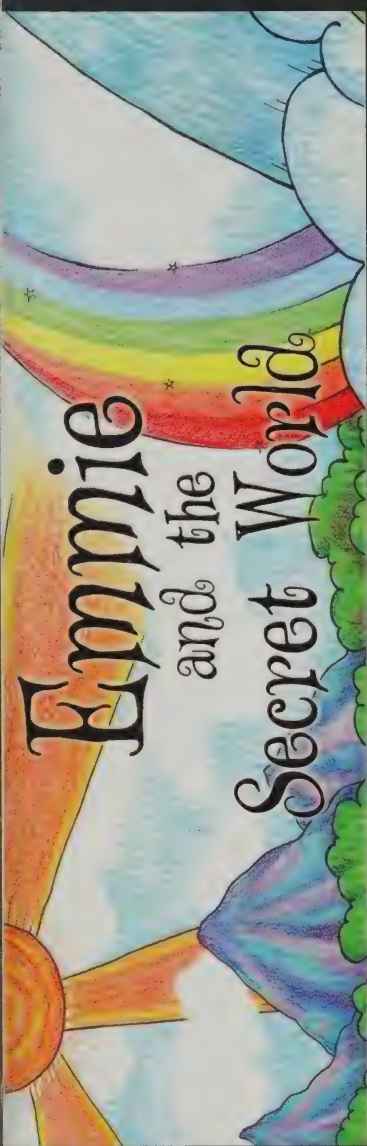 Emmie
and the
Secret World